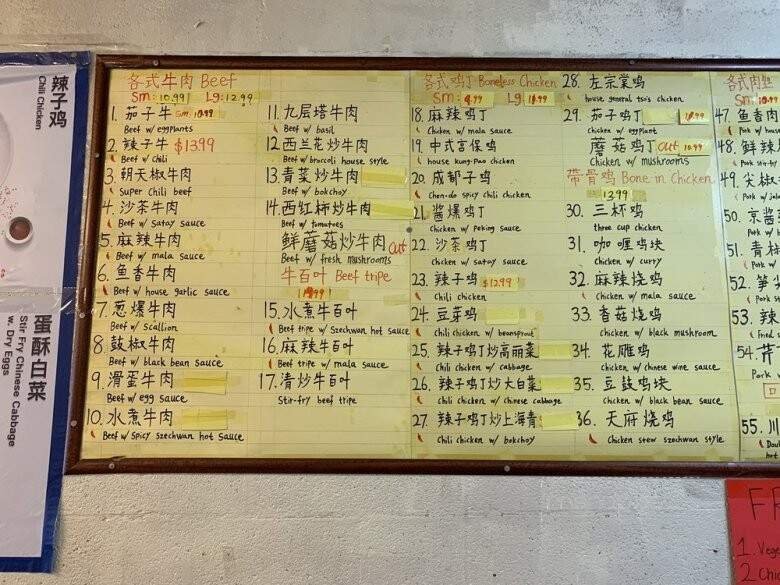 辣子鸡
Chili Chicken
蛋酥白菜
Stir Fry Chinese Cabbage
w. Dry Eggs
各式牛肉 Beef
Sm: 10.99 Lg: 12.99
1. 茄子牛 Sm:
Beef w/ eggplants
2. 辣子牛 $1399
Beef w/ chili
3. 朝天椒牛肉
Super Chili beef
4. 沙茶牛肉
Beef w/ satay sauce
5. 麻辣牛肉
Beef w/ mala sauce
6. 鱼香牛肉
Beef w/ house garlic sauce
7. 葱爆牛肉
Beef w/ scallion
8. 鼓椒牛肉
Beef w/ black bean sauce
9. 滑蛋牛肉
Beef w/ egg sauce
10. 水煮牛肉
Beef w/ spicy szechwan hot sauce
11. 九层塔牛肉
Beef w/ basil
12. 西兰花炒牛肉
Beef w/ broccoli house style
13. 青菜炒牛肉
Beef w/ bokchoy
14. 西红柿炒牛肉
Beef w/ tomatoes
鲜蘑菇炒牛肉 out
Beef w/ fresh mushrooms
牛百叶 Beef tripe
15. 水煮牛百叶
Beef tripe w/ Szechwan hot sauce
16. 麻辣牛百叶
Beef tripe w/ mala sauce
17. 清炒牛百叶
Stir-fry beef tripe
各式鸡丁 Boneless Chicken
Sm: Lg:
18. 麻辣鸡丁
Chicken w/ mala sauce
19. 中式宫保鸡
house kung-pao chicken
20. 成都子鸡
Chen-do spicy chili chicken
21. 酱爆鸡丁
Chicken w/ peking sauce
22. 沙茶鸡丁
Chicken w/ satay sauce
23. 辣子鸡 $12.99
Chili chicken
24. 豆芽鸡
Chili chicken w/ beansprout
25. 辣子鸡丁炒高丽菜
Chili chicken w/ cabbage
26. 辣子鸡丁炒大白菜
Chili chicken w/ chinese cabbage
27. 辣子鸡丁炒上海青
Chili chicken w/ bokchoy
28. 左宗棠鸡
house general tso's chicken
29. 茄子鸡丁
Chicken w/ eggplant
蘑菇鸡丁 out 10.99
Chicken w/ mushrooms
带骨鸡 Bone in Chicken
1399
30. 三杯鸡
three cup chicken
31. 咖喱鸡块
Chicken w/ curry
32. 麻辣烧鸡
Chicken w/ mala sauce
33. 香菇烧鸡
Chicken w/ black mushroom
34. 花雕鸡
Chicken w/ chinese wine sauce
35. 豆鼓鸡块
Chicken w/ black bean sauce
36. 天府烧鸡
Chicken stew szechwan style
各式肉
Sm:
47. 鱼香肉
Pork w/
48. 鲜辣
Pork stir-fr
49. 尖椒
Pork w/
50. 京酱
Pork w/
51. 青椒
Pork w/
52. 笋
Pork w/
53. 辣
54. 芹
Pork
55. 川
hot
1. Veg
2. Chi